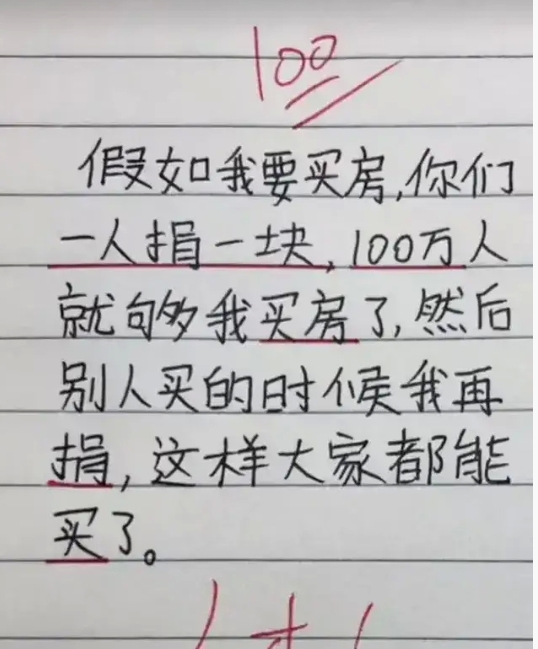 100
假如我要买房,你们
一人捐一块,100万人
就够我买房了,然后
别人买的时候我再
捐,这样大家都能
买了。